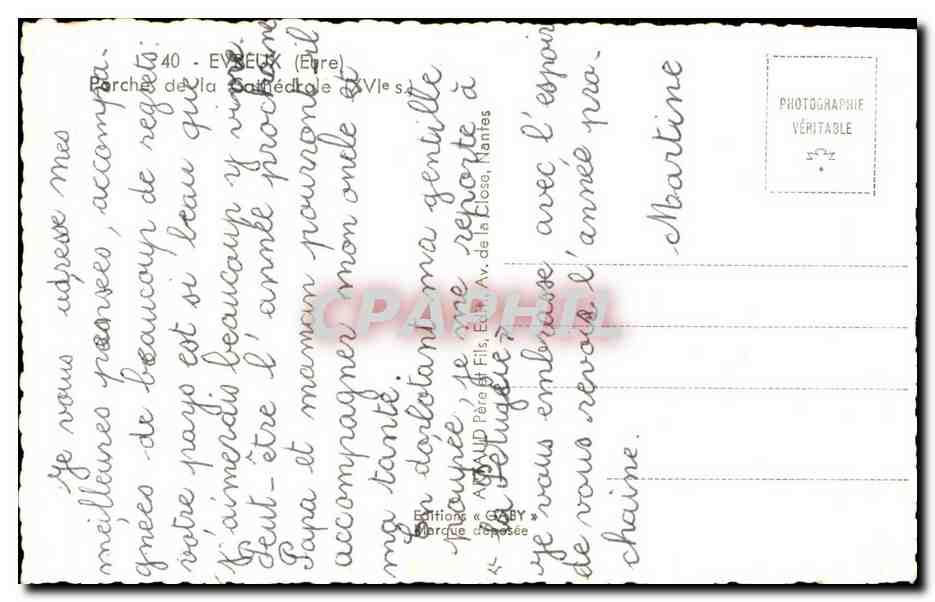 40 - EVREUX (Eure)
Porches de la Cathédrale (XVIe s.)
PHOTOGRAPHIE
VÉRITABLE
Je vous adresse mes
meilleures pensées, accompa-
gnées de beaucoup de regrets:
votre pays est si beau que
j'aimerais beaucoup y vivre.
Peut-être l'année prochaine
Papa et maman pourront-il
accompagner mon oncle et
ma tante.
En dorlotant ma gentille
poupée, je me reporte à
la
Je vous embrasse avec l'espoir
de vous revoir l'année pro-
chaine.
Martine
ARTAUD Père et Fils, Edit., Av. de la Close, Nantes
Editions « GABY »
Marque déposée
CPAPHIL